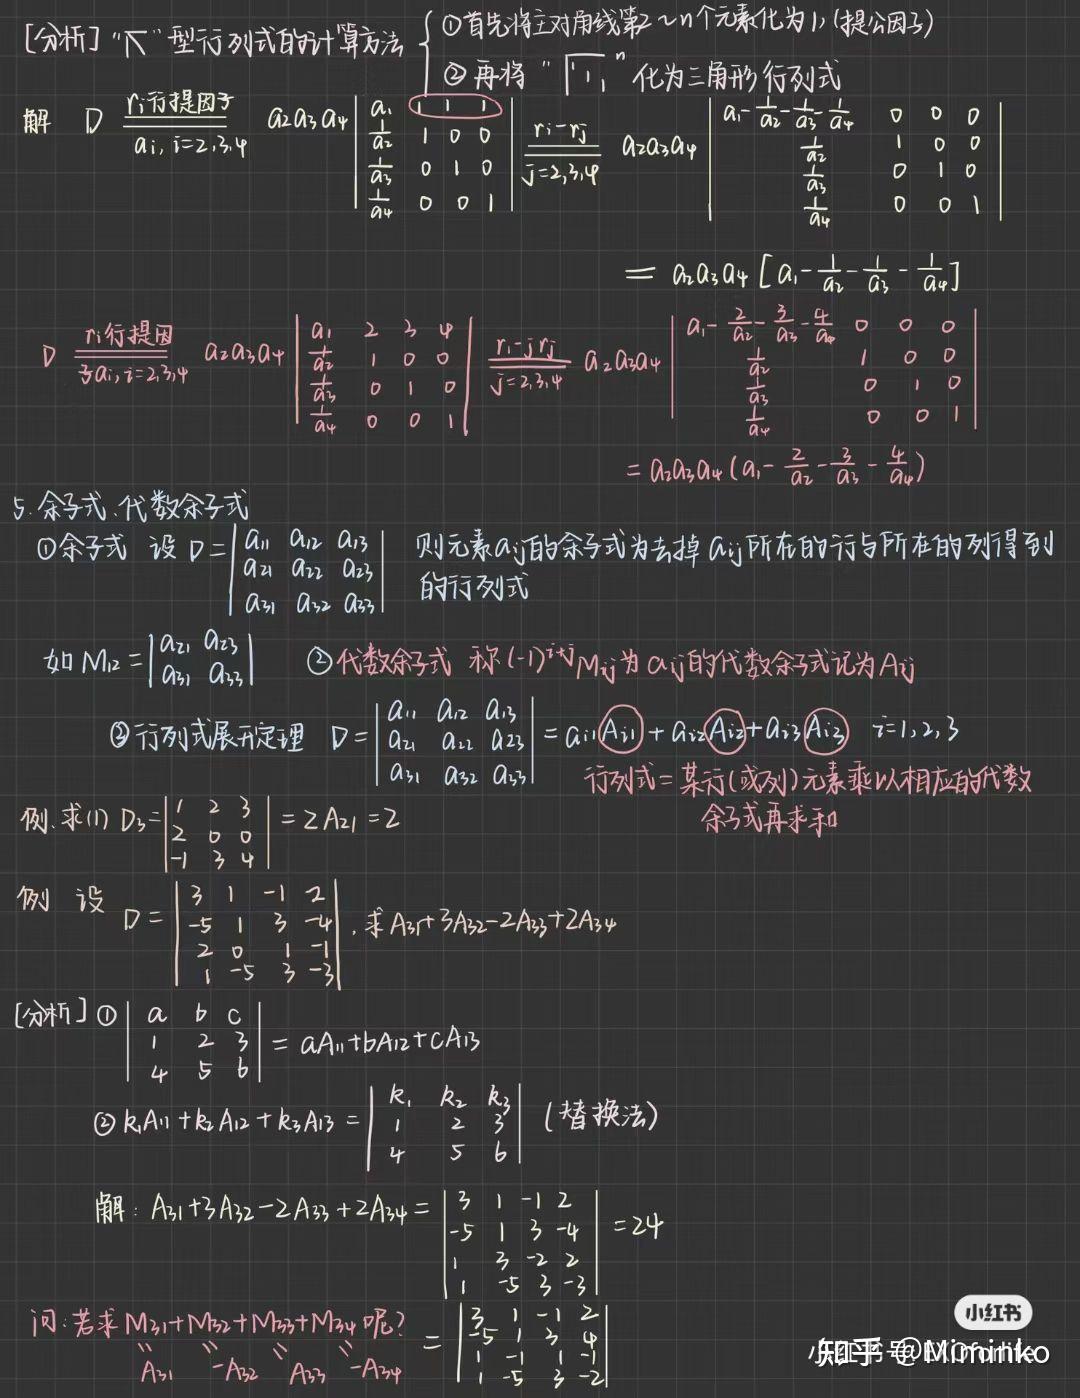 [分析] "下"型行列式的计算方法 { ①首先将主对角线第2~n个元素化为1,(提公因子)
②再将 "厂⋱" 化为三角形行列式
解 D =(ri行提因子 ai, i=2,3,4) a2a3a4 | a1 1 1 1 ; 1/a2 1 0 0 ; 1/a3 0 1 0 ; 1/a4 0 0 1 | =(ri-rj j=2,3,4) a2a3a4 | a1-1/a2-1/a3-1/a4 0 0 0 ; 1/a2 1 0 0 ; 1/a3 0 1 0 ; 1/a4 0 0 1 |
= a2a3a4 [a1-1/a2-1/a3-1/a4]
D =(ri行提因子ai, i=2,3,4) a2a3a4 | a1 2 3 4 ; 1/a2 1 0 0 ; 1/a3 0 1 0 ; 1/a4 0 0 1 | =(r1-jrj j=2,3,4) a2a3a4 | a1-2/a2-3/a3-4/a4 0 0 0 ; 1/a2 1 0 0 ; 1/a3 0 1 0 ; 1/a4 0 0 1 |
= a2a3a4 (a1-2/a2-3/a3-4/a4)
5. 余子式、代数余子式
①余子式 设 D = | a11 a12 a13 ; a21 a22 a23 ; a31 a32 a33 | 则元素aij的余子式为去掉aij所在的行与所在的列得到
的行列式
如 M12 = | a21 a23 ; a31 a33 | ②代数余子式 称(-1)^(i+j) Mij为aij的代数余子式记为Aij
③行列式展开定理 D = | a11 a12 a13 ; a21 a22 a23 ; a31 a32 a33 | = ai1Ai1 + ai2Ai2 + ai3Ai3 i=1,2,3
行列式=某行(或列)元素乘以相应的代数
余子式再求和
例.求(1) D3 = | 1 2 3 ; 2 0 0 ; -1 3 4 | = 2A21 = 2
例 设 D = | 3 1 -1 2 ; -5 1 3 -4 ; 2 0 1 -1 ; 1 -5 3 -3 | . 求A31+3A32-2A33+2A34
[分析] ① | a b c ; 1 2 3 ; 4 5 6 | = aA11+bA12+cA13
② k1A11+k2A12+k3A13 = | k1 k2 k3 ; 1 2 3 ; 4 5 6 | (替换法)
解: A31+3A32-2A33+2A34 = | 3 1 -1 2 ; -5 1 3 -4 ; 1 3 -2 2 ; 1 -5 3 -3 | = 24
问:若求M31+M32+M33+M34呢? = | 3 1 -1 2 ; -5 1 3 4 ; 1 -1 1 -1 ; 1 -5 3 -2 |
A31 -A32 A33 -A34
小红书
知乎 @Miminko